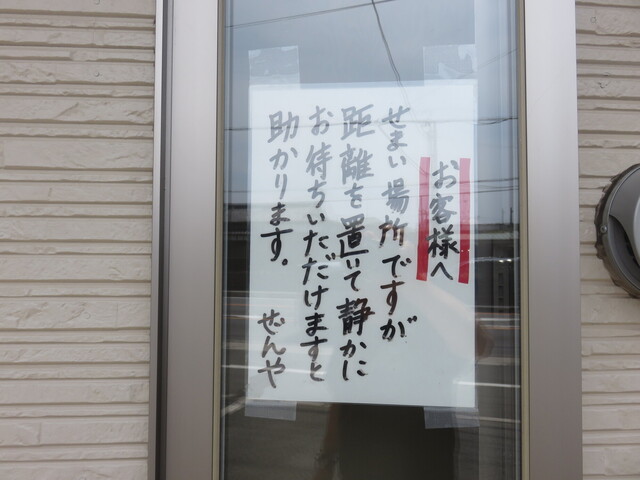 お客様へ
せまい場所ですが
距離を置いて静かに
お待ちいただけますと
助かります。
ぜんや